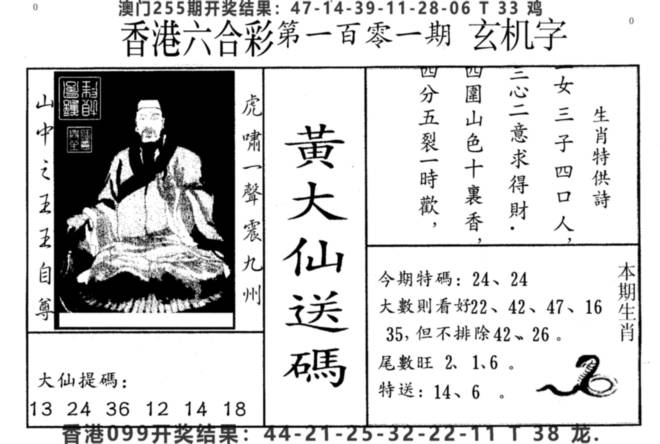 澳门255期开奖结果：47-14-39-11-28-06 T 33 鸡
香港六合彩第一百零一期 玄机字
虎嘯一聲震九州
山中之王王自尊
黃大仙送碼
生肖特供詩
一女三子四口人，
三心二意求得財．
四圍山色十裏香，
四分五裂一時歡，
本期生肖
今期特碼：24、24
大數則看好22、42、47、16
35，但不排除42、26。
尾數旺 2、1、6。
特送：14、6。
大仙提碼：
13 24 36 12 14 18
香港099开奖结果：44-21-25-32-22-11 T 38 龙